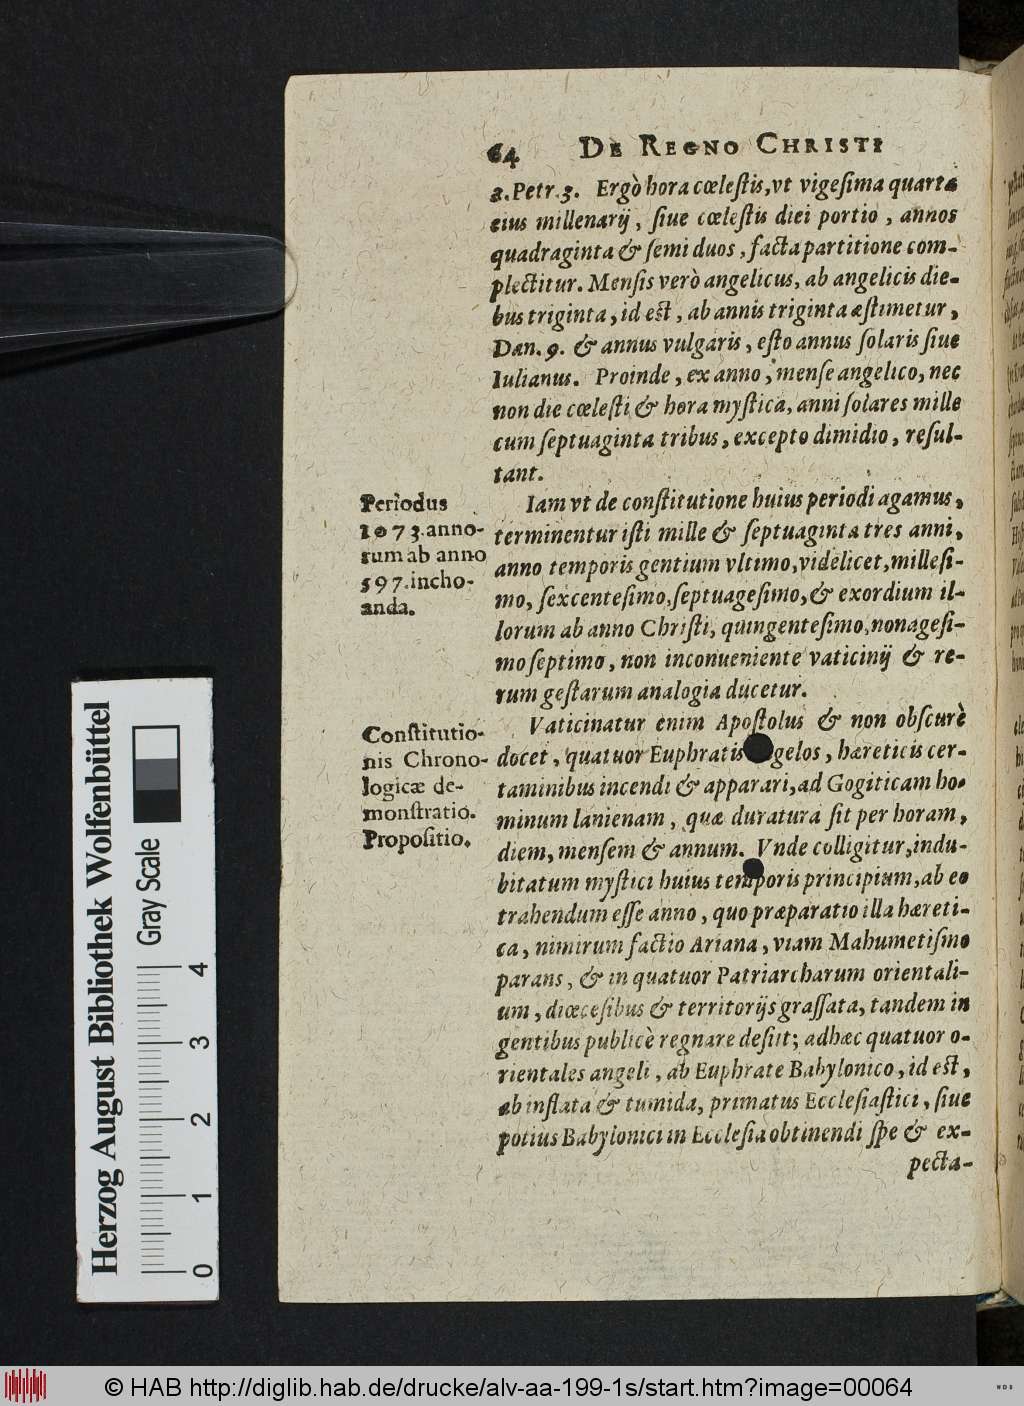 64 DE REGNO CHRISTI
2. Petr. 3. Ergò hora cœleſtis, vt vigeſima quarta
eius millenarij, ſiue cœleſtis diei portio, annos
quadraginta & ſemi duos, facta partitione com-
plectitur. Menſis verò angelicus, ab angelicis die-
bus triginta, id eſt, ab annis triginta æſtimetur,
Dan. 9. & annus vulgaris, eſto annus ſolaris ſiue
Iulianus. Proinde, ex anno, menſe angelico, nec
non die cœleſti & hora myſtica, anni ſolares mille
cum ſeptuaginta tribus, excepto dimidio, reſul-
tant.
Periodus
1073. anno-
rum ab anno
597. incho-
anda.
Iam vt de conſtitutione huius periodi agamus,
terminentur iſti mille & ſeptuaginta tres anni,
anno temporis gentium vltimo, videlicet, milleſi-
mo, ſexcenteſimo, ſeptuageſimo, & exordium il-
lorum ab anno Chriſti, quingenteſimo, nonageſi-
mo ſeptimo, non inconueniente vaticinij & re-
rum geſtarum analogia ducetur.
Conſtitutio-
nis Chrono-
logicæ de-
monſtratio.
Propoſitio.
Vaticinatur enim Apoſtolus & non obſcurè
docet, quatuor Euphratis gelos, hæreticis cer-
taminibus incendi & apparari, ad Gogiticam ho-
minum lanienam, quæ duratura ſit per horam,
diem, menſem & annum. Vnde colligitur, indu-
bitatum myſtici huius temporis principium, ab eo
trahendum eſſe anno, quo præparatio illa hæreti-
ca, nimirum factio Ariana, viam Mahumetiſmo
parans, & in quatuor Patriarcharum orientali-
um, diœceſibus & territorijs graſſata, tandem in
gentibus publicè regnare deſiit; adhæc quatuor o-
rientales angeli, ab Euphrate Babylonico, id eſt,
ab inflata & tumida, primatus Eccleſiaſtici, ſiue
potius Babylonici in Eccleſia obtinendi ſpe & ex-
pecta-
Herzog August Bibliothek Wolfenbüttel
Gray Scale
0 1 2 3 4
© HAB http://diglib.hab.de/drucke/alv-aa-199-1s/start.htm?image=00064